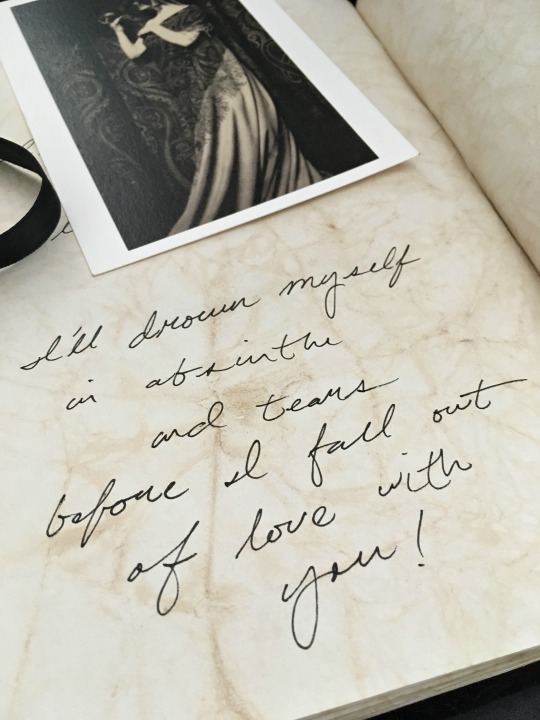 I'll drown myself
in absinthe
and tears
before I fall out
of love with
you!